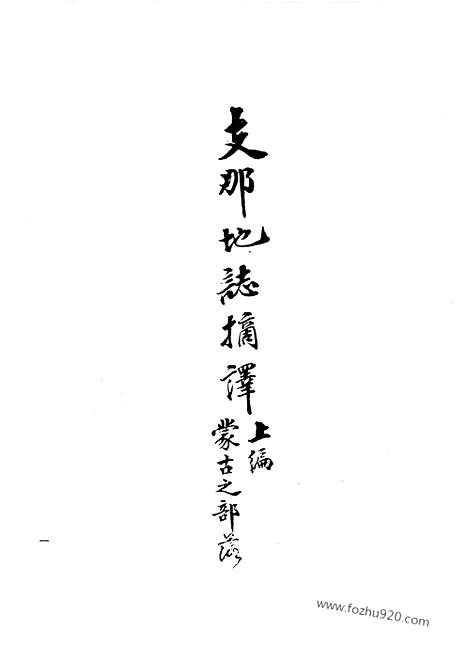 支那地誌摘譯
上編
蒙古之部落
一
www.fozhu920.com